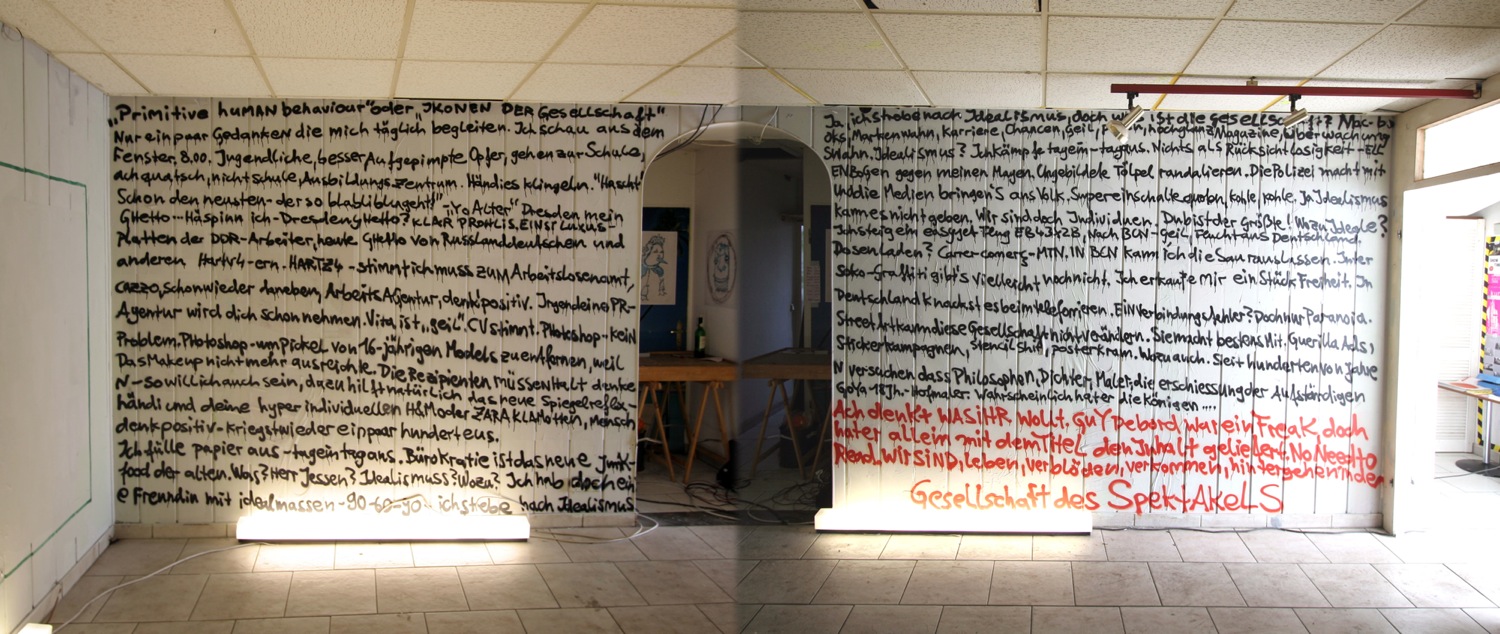 „Primitive humAN behaviour" oder „IKONEN DER Gesellschaft"
Nur ein paar Gedanken die mich täglich begleiten. Ich schau aus dem
Fenster, 8.00. Jugendliche, besser Aufgepimpte Opfer, gehen zur Schule,
ach quatsch, nicht schule, Ausbildungszentrum. Händies klingeln. "Hascht
Schon den neusten - der so blabliblungeht!" - „Yo Alter" Dresden mein
Ghetto... Haspinn ich - Dresden ghetto? KLAR PROHLIS, EINST LUXUS-
Platten der DDR-Arbeiter, heute Ghetto von Russlanddeutschen und
anderen Hartv4-ern. HARTZ4 - stimmt ich muss zum Arbeitslosenamt,
cazzo, schon wieder daneben, Arbeits Agentur, denk positiv. Irgendeine PR-
Agentur wird dich schon nehmen. Vita ist „geil". CV stimmt. Photoshop - kein
Problem. Photoshop - um Pickel von 16-jährigen Models zu entfernen, weil
Das Makeup nicht mehr ausreichte. Die Rezipienten müssen halt denke
N - so will ich auch sein, dazu hilft natürlich das neue Spiegelreflex-
händi und deine hyper individuellen H&M oder ZARA KLAMotten, Mensch
denk positiv - kriegst wieder ein paar hundert eus.
Ich fülle papier aus - tagein tagaus. Bürokratie ist das neue Junk-
food der alten. Was? Herr Jessen? Idealismuss? Wozu? Ich hab doch ein
e Freundin mit idealmassen - 90-60-90 .. ich strebe nach Idealismus
Ja, ich strebe nach Idealismus, doch wo ist die gesellschaft? Mac-b
oks, Markenwahn, Karriere, Chancen, Geil, hochglanz Magazine, Überwachung
Swahn. Idealismus? Ich kämpfe tagein - tagaus. Nichts als Rücksichtlosigkeit - ELL
ENBogen gegen meinen Magen. Ungebildete Tölpel randalieren. Die Polizei macht mit
Und die Medien bringen'S ans Volk. Supereinschaltequoten, kohle, kohle. Ja Idealismus
kann es nicht geben. Wir sind doch Individuen. Du bist der Größte! Wozu Ideale?
Ich steig ein easyjet-Fleug EB43x2B, Nach BCN - geil. Feucht aus Deutschland.
Dosenladen? Carrer-comerç-MTN, IN BCN kann ich die Sau rauslassen. Inter
Soko-Graffiti gibt's vielleicht noch nicht. Ich erkaufe mir ein Stück Freiheit. In
Deutschland knackst es beim telefonieren. EiN Verbindungsfehler? Doch nur Paranoia.
Street Art kann diese Gesellschaft nicht verändern. Sie macht bestens Mit. Guerilla Ads,
Stickerkampagnen, stencil shit, posterkram. Wozu auch. Seit hunderten von Jahre
N versuchen dass Philosophen, Dichter, Maler, die erschiessung der Aufständigen
Goya - 18Jh. - Hofmaler. Wahrscheinlich hater die Königen ....
Ach denkt WAS iHR wollt, GuY Debord war ein Freak, doch
hater allein mit dem Titel den Inhalt geliefert. No Need to
Read. Wir SIND, leben, verblöden, verkommen, hintergehen in der
Gesellschaft des SpektAkelS